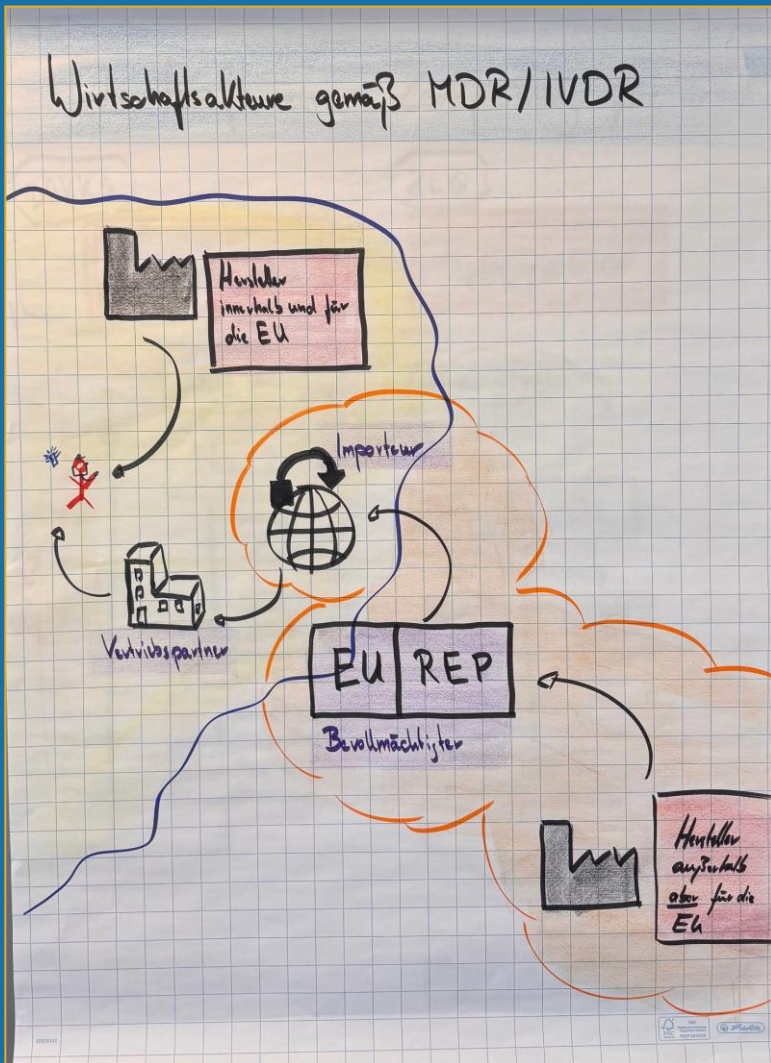 Wirtschaftsakteure gemäß MDR/IVDR
Hersteller
innerhalb und für
die EU
Importeur
Vertriebspartner
EU REP
Bevollmächtigter
Hersteller
außerhalb
aber für die
EU
FSC